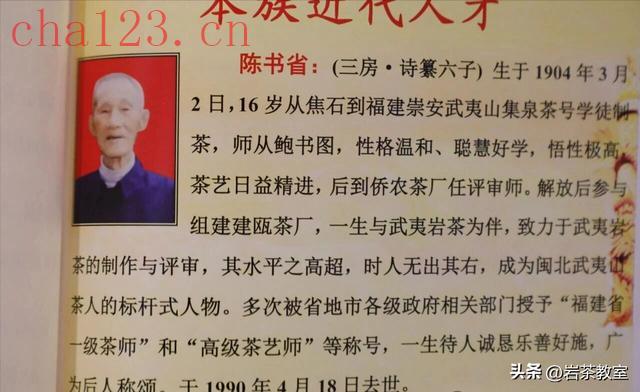 本族近代人才
cha123.cn
陈书省：(三房·诗纂六子) 生于 1904 年 3 月
2 日，16 岁从焦石到福建崇安武夷山集泉茶号学徒制
茶，师从鲍书图，性格温和、聪慧好学，悟性极高，
茶艺日益精进，后到侨农茶厂任评审师。解放后参与
组建建瓯茶厂，一生与武夷岩茶为伴，致力于武夷岩
茶的制作与评审，其水平之高超，时人无出其右，成为闽北武夷山
茶人的标杆式人物。多次被省地市各级政府相关部门授予“福建省
一级茶师”和“高级茶艺师”等称号，一生待人诚恳乐善好施，广
为后人称颂。于 1990 年 4 月 18 日去世。
头条 @岩茶教室